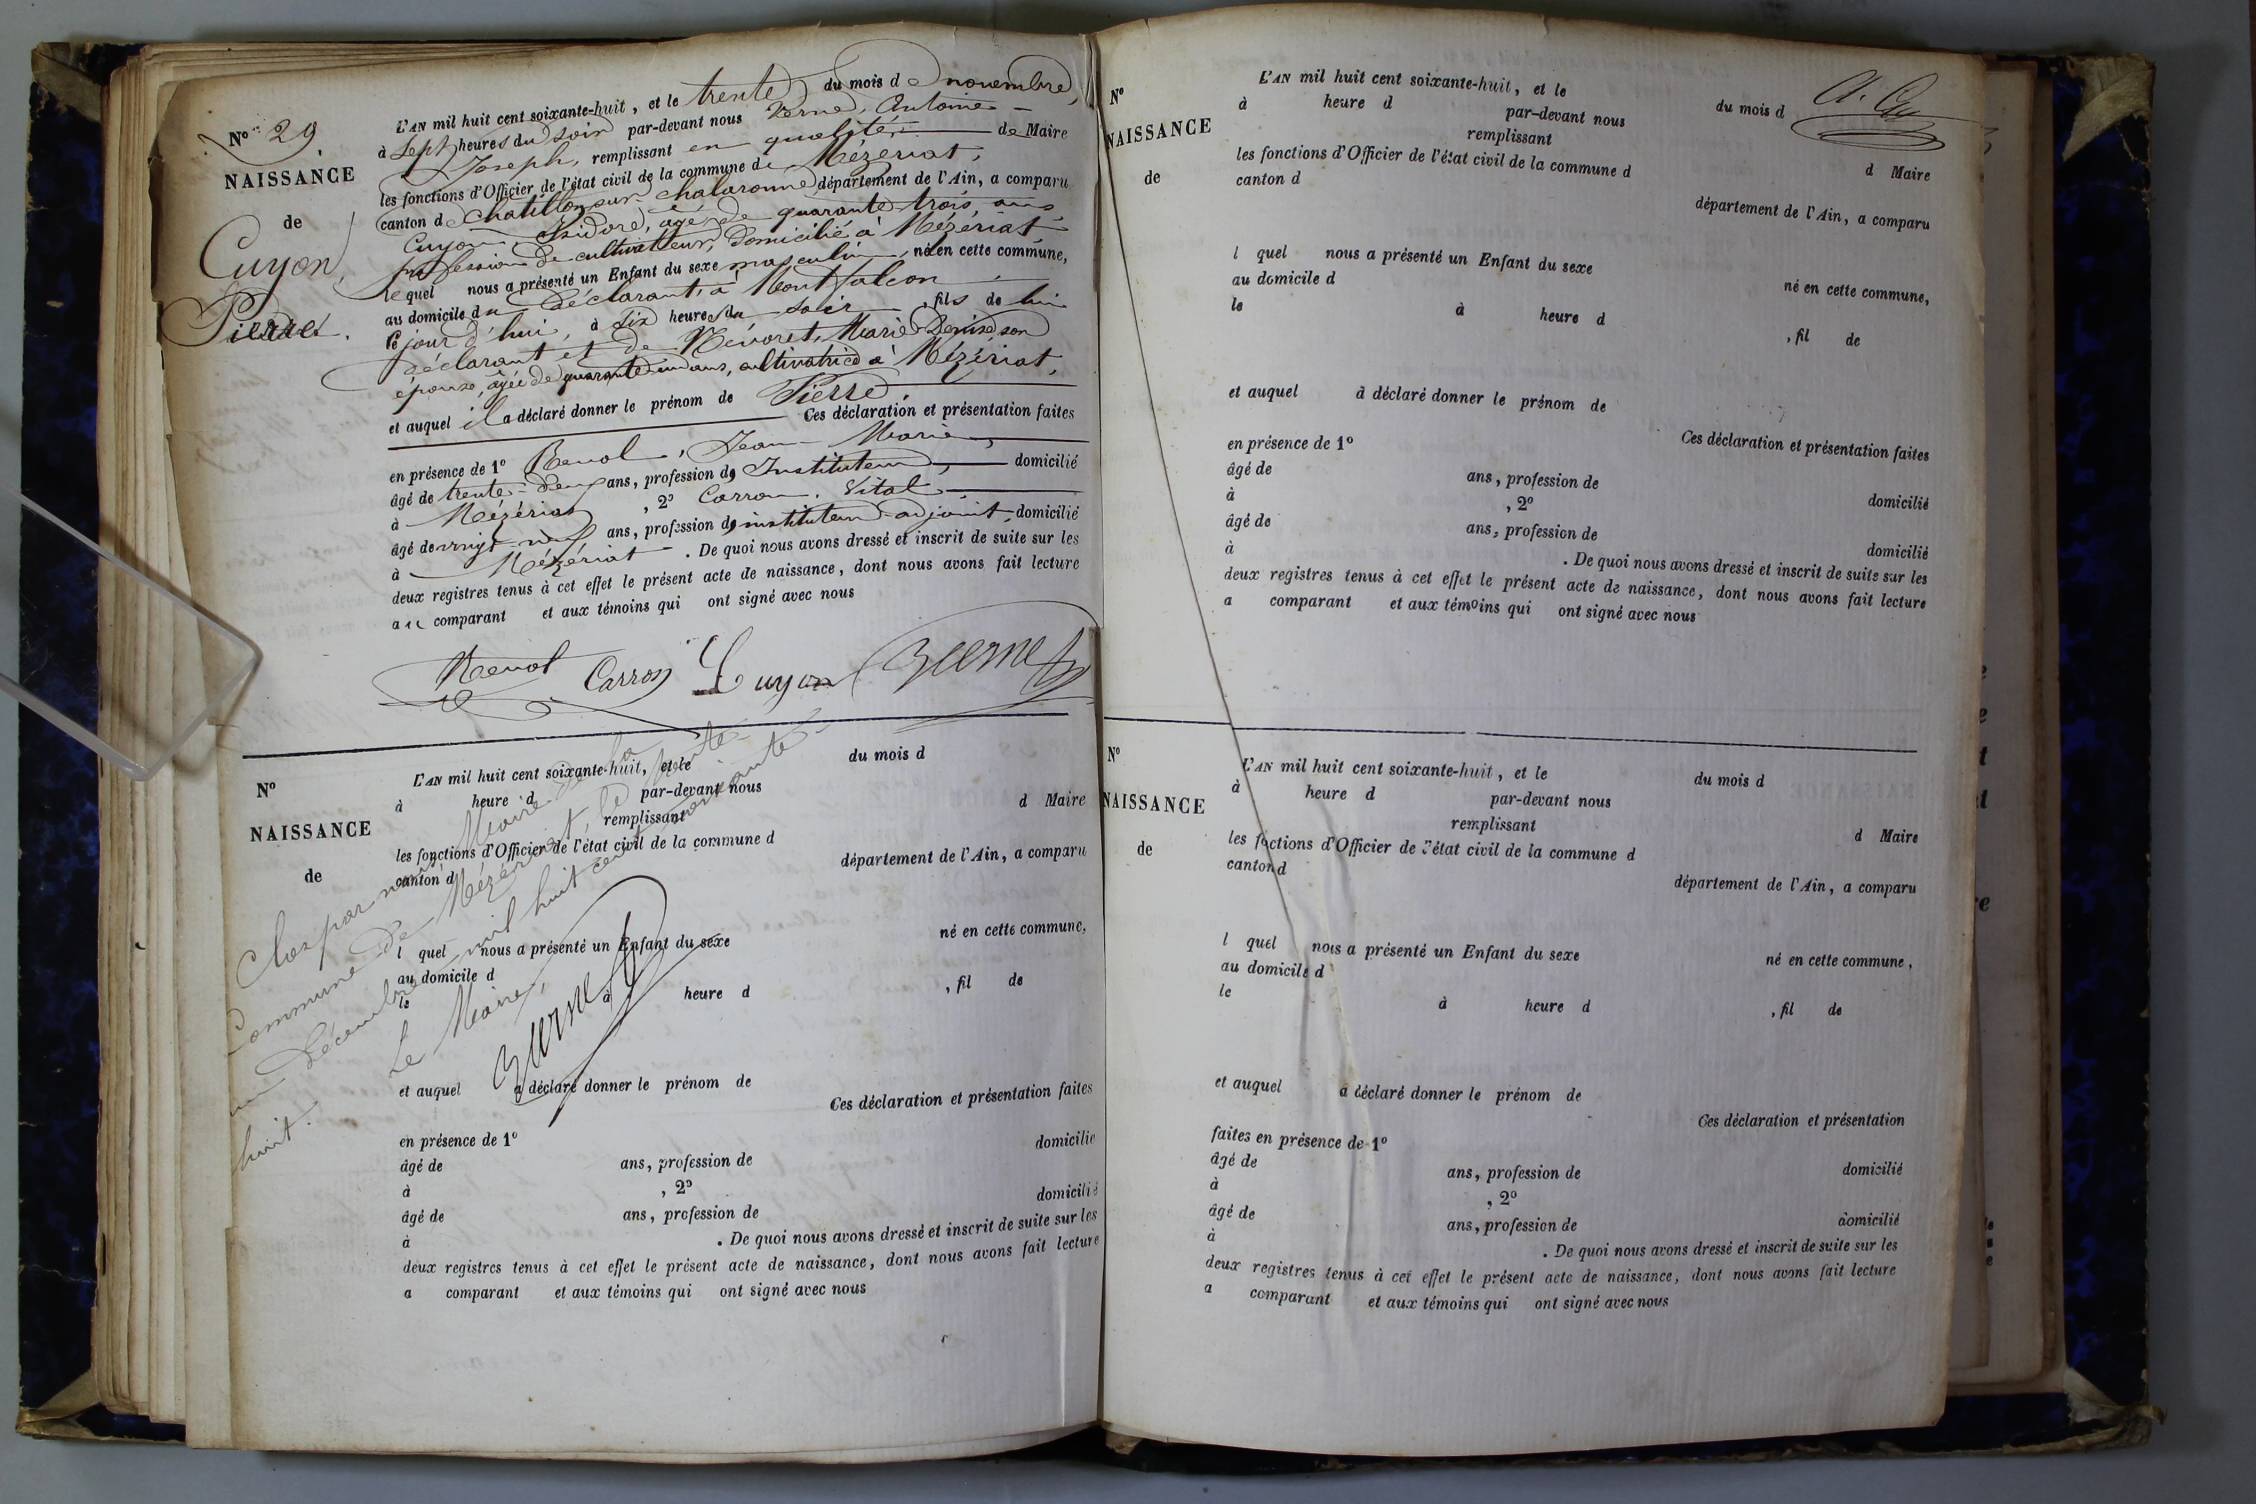 N° 29
NAISSANCE
de
Guyon,
Pierre.
L'AN mil huit cent soixante-huit, et le trente du mois de novembre,
à Sept heures du soir par-devant nous Verne, Antoine
Joseph, remplissant en qualité de Maire
les fonctions d'Officier de l'état civil de la commune de Mézériat,
canton de Chatillon sur Chalaronne département de l'Ain, a comparu
Guyon, Isidore, âgé de quarante trois ans,
profession de cultivateur, domicilié à Mézériat
lequel nous a présenté un Enfant du sexe masculin, né en cette commune,
au domicile du déclarant, à Montfalcon
le jour d'hui, à six heures du soir, fils de lui
déclarant et de Névoret, Marie Denise son
épouse, âgée de quarante un ans, cultivatrice à Mézériat,
et auquel il a déclaré donner le prénom de Pierre
Ces déclaration et présentation faites
en présence de 1° Renol, Jean Marie,
âgé de trente-deux ans, profession d'Instituteur, domicilié
à Mézériat, 2° Carron, Vital
âgé de vingt neuf ans, profession d'instituteur adjoint, domicilié
à Mézériat. De quoi nous avons dressé et inscrit de suite sur les
deux registres tenus à cet effet le présent acte de naissance, dont nous avons fait lecture
au comparant et aux témoins qui ont signé avec nous
Renol Carron Guyon Verne
N°
NAISSANCE
de
L'AN mil huit cent soixante-huit, et le du mois d
à heure d par-devant nous
remplissant d Maire
les fonctions d'Officier de l'état civil de la commune d
canton d département de l'Ain, a comparu
l quel nous a présenté un Enfant du sexe né en cette commune,
au domicile d
le à heure d , fil de
et auquel a déclaré donner le prénom de
Ces déclaration et présentation faites
en présence de 1°
âgé de ans, profession de domicilié
à , 2°
âgé de ans, profession de domicilié
à . De quoi nous avons dressé et inscrit de suite sur les
deux registres tenus à cet effet le présent acte de naissance, dont nous avons fait lecture
a comparant et aux témoins qui ont signé avec nous
Clos par nous Maire de la
Commune de Mézériat, le trente-
un Décembre mil huit cent soixante-
huit.
Le Maire,
Verne
N°
NAISSANCE
de
L'AN mil huit cent soixante-huit, et le du mois d
à heure d par-devant nous
remplissant d Maire
les fonctions d'Officier de l'état civil de la commune d
canton d département de l'Ain, a comparu
l quel nous a présenté un Enfant du sexe né en cette commune,
au domicile d
le à heure d , fil de
et auquel à déclaré donner le prénom de
Ces déclaration et présentation faites
en présence de 1°
âgé de ans, profession de domicilié
à , 2°
âgé de ans, profession de domicilié
à . De quoi nous avons dressé et inscrit de suite sur les
deux registres tenus à cet effet le présent acte de naissance, dont nous avons fait lecture
a comparant et aux témoins qui ont signé avec nous
N°
NAISSANCE
de
L'AN mil huit cent soixante-huit, et le du mois d
à heure d par-devant nous
remplissant d Maire
les foctions d'Officier de l'état civil de la commune d
canton d département de l'Ain, a comparu
l quel nous a présenté un Enfant du sexe né en cette commune,
au domicile d
le à heure d , fil de
et auquel a déclaré donner le prénom de
Ces déclaration et présentation
faites en présence de 1°
âgé de ans, profession de domicilié
à , 2°
âgé de ans, profession de domicilié
à . De quoi nous avons dressé et inscrit de suite sur les
deux registres tenus à cet effet le présent acte de naissance, dont nous avons fait lecture
a comparant et aux témoins qui ont signé avec nous